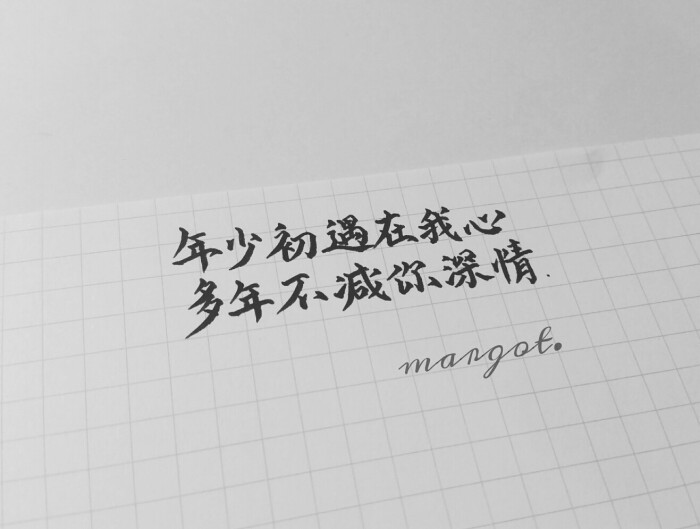 年少初遇在我心
多年不减你深情.
margot.